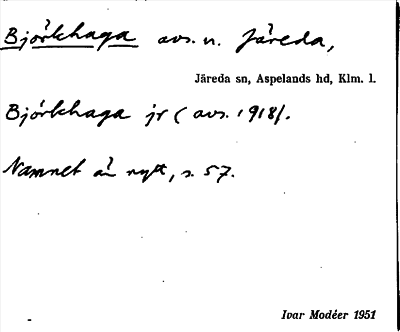 Björkhaga avs. u. Järeda,
Järeda sn, Aspelands hd, Klm. l.
Björkhaga jr (avs. 1918).
Namnet är nytt, s. 57.
Ivar Modéer 1951